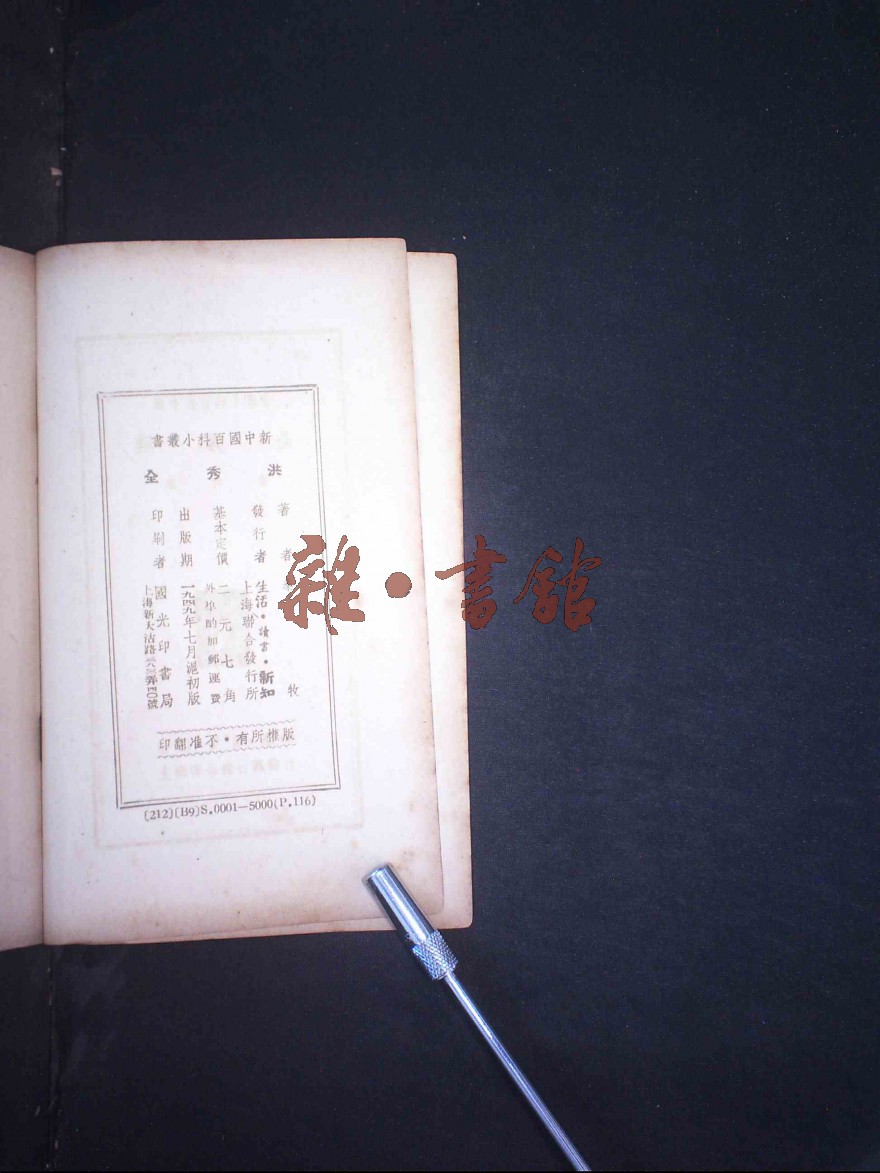 新中國百科小叢書
洪秀全
著者
牧
發行者
生活·讀書·新知
上海聯合發行所
基本定價
二元七角
外埠酌加郵運費
出版期
一九四九年七月滬初版
印刷者
國光印書局
上海新大沽路
號
版權所有·不准翻印
(212)(B9)S.0001—5000(P.116)
雜·書館